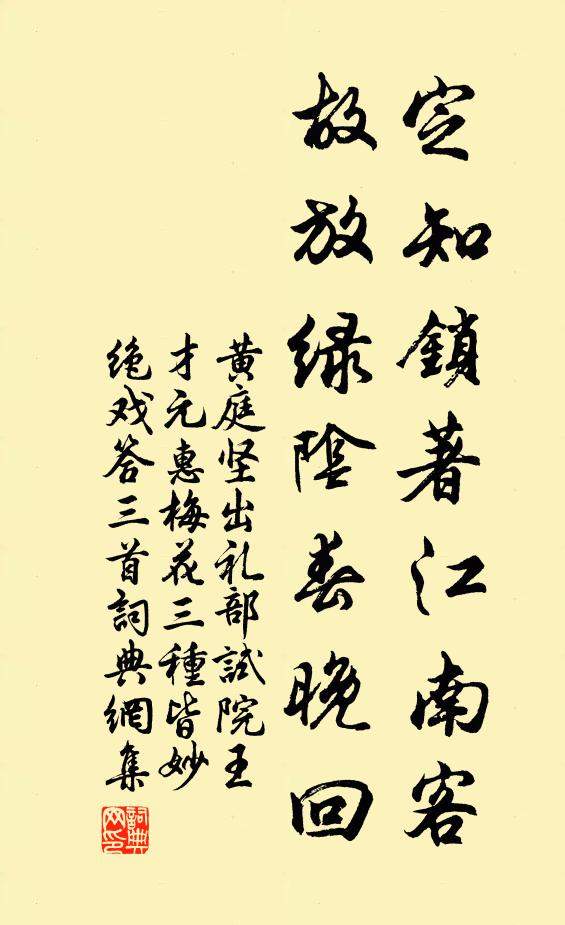 定知鎖著江南客
故放緑陰春晚回
黄庭坚出礼部試院王
才元惠梅花三種皆妙
絶戏答三首詞典網集
詞典网印